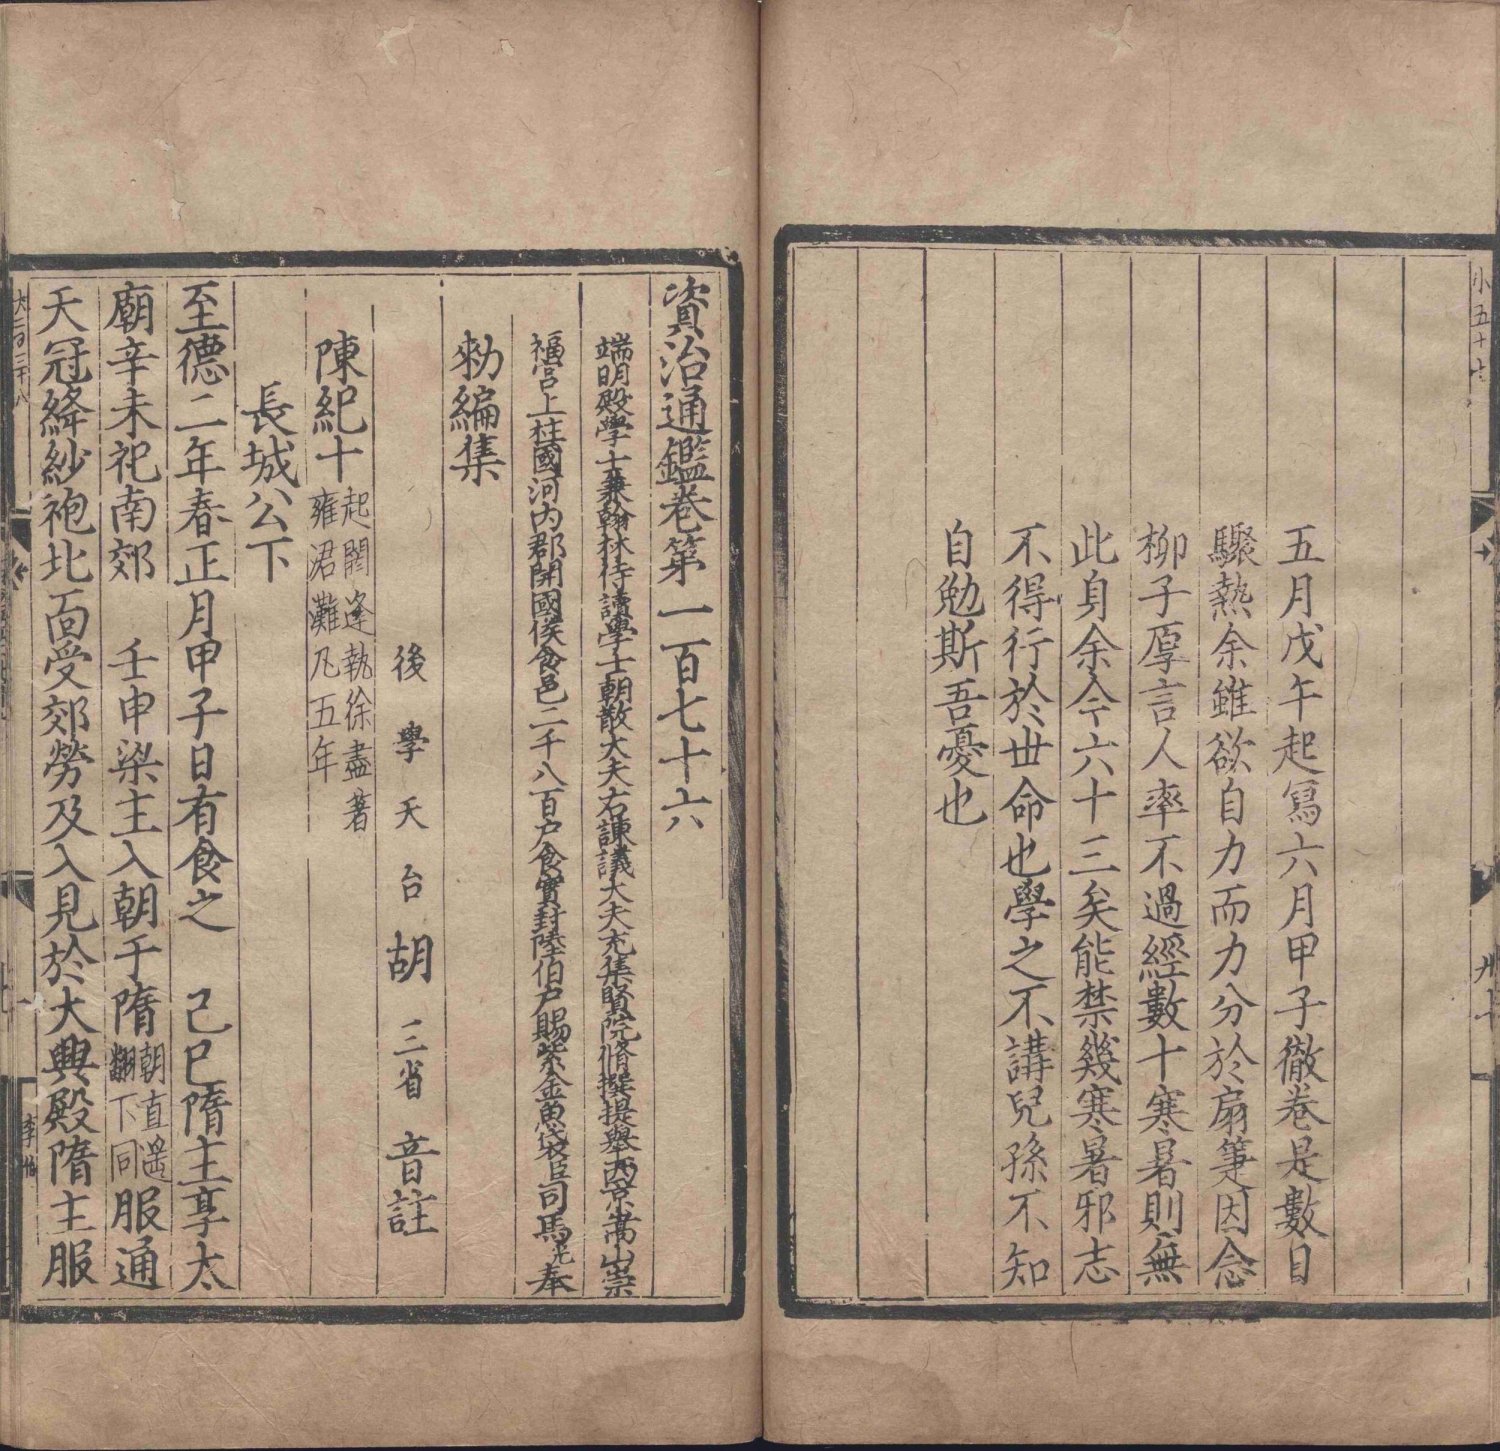 小五十七
五月戊午起寫六月甲子徹卷是數目
驟熱余雖欲自力而力分於扇箑因念
柳子厚言人率不過經數十寒暑則無
此身余今六十三矣能禁幾寒暑邪志
不得行於世命也學之不講兒孫不知
自勉斯吾憂也
資治通鑑卷第一百七十六
端明殿學士兼翰林侍讀學士朝散大夫右諫議大夫充集賢院脩撰提舉西京嵩山崇
福宮上柱國河內郡開國侯食邑二千八百户食實封陸伯户賜紫金魚袋臣司馬光奉
勑編集
後學天台胡三省音註
陳紀十起閼逢執徐盡著
雍涒灘凡五年
長城公下
至德二年春正月甲子日有食之 己巳隋主享太
廟辛未祀南郊 壬申梁主入朝于隋朝直遙翻下同服通
天冠絳紗袍北面受郊勞及入見於大興殿隋主服